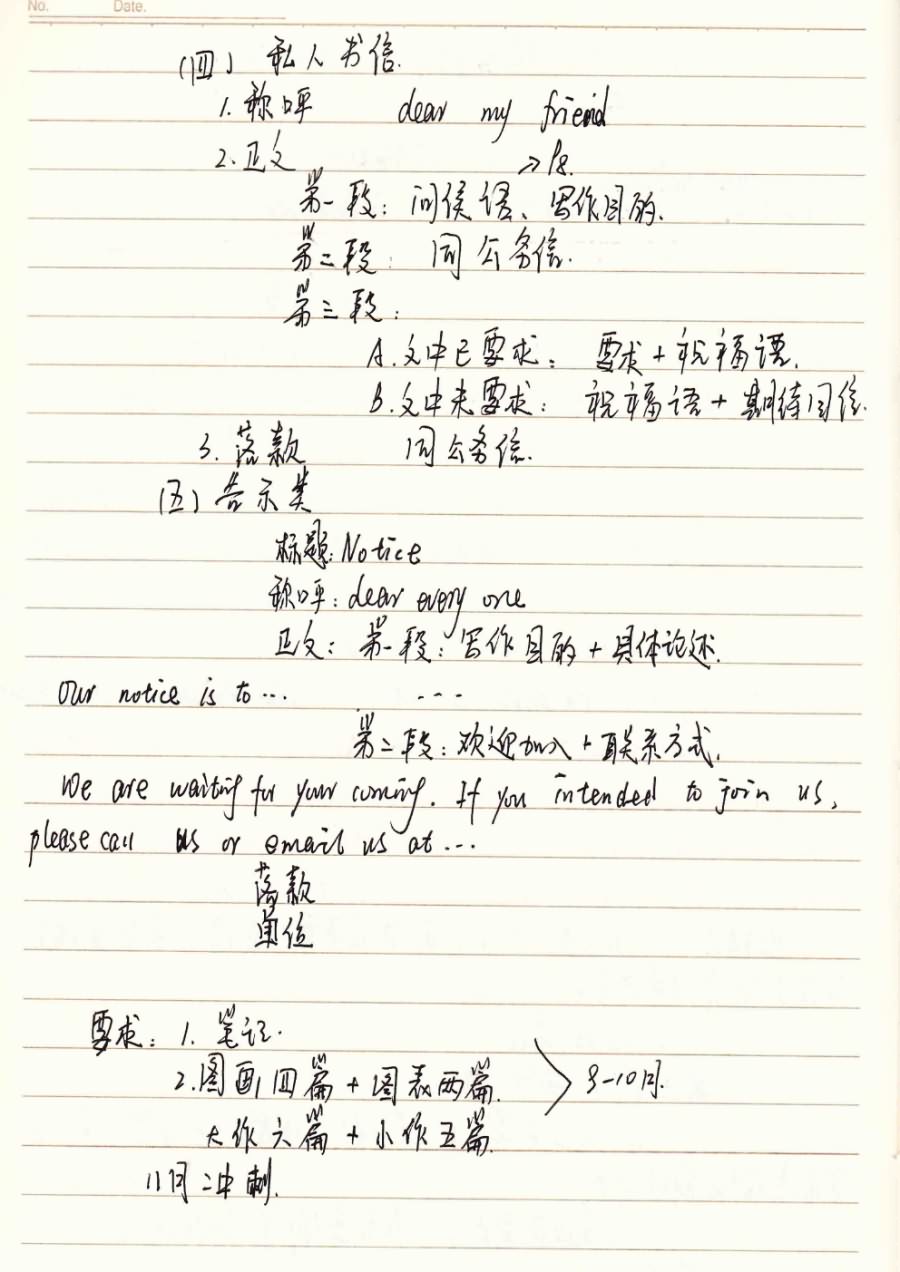 No. Date.
(四) 私人书信.
1. 称呼 dear my friend
2. 正文 → P8.
第一段: 问候语、写作目的.
第二段: 同公务信.
第三段:
A. 文中已要求: 要求 + 祝福语.
B. 文中未要求: 祝福语 + 期待回信.
3. 落款 同公务信.
(五) 告示类
标题: Notice
称呼: dear every one
正文: 第一段: 写作目的 + 具体论述.
Our notice is to ... ...
第二段: 欢迎加入 + 联系方式.
We are waiting for your coming. If you intended to join us,
please call us or email us at ...
落款
单位
要求: 1. 笔记.
2. 图画四篇 + 图表两篇. 9-10月.
大作六篇 + 小作五篇
11月冲刺.